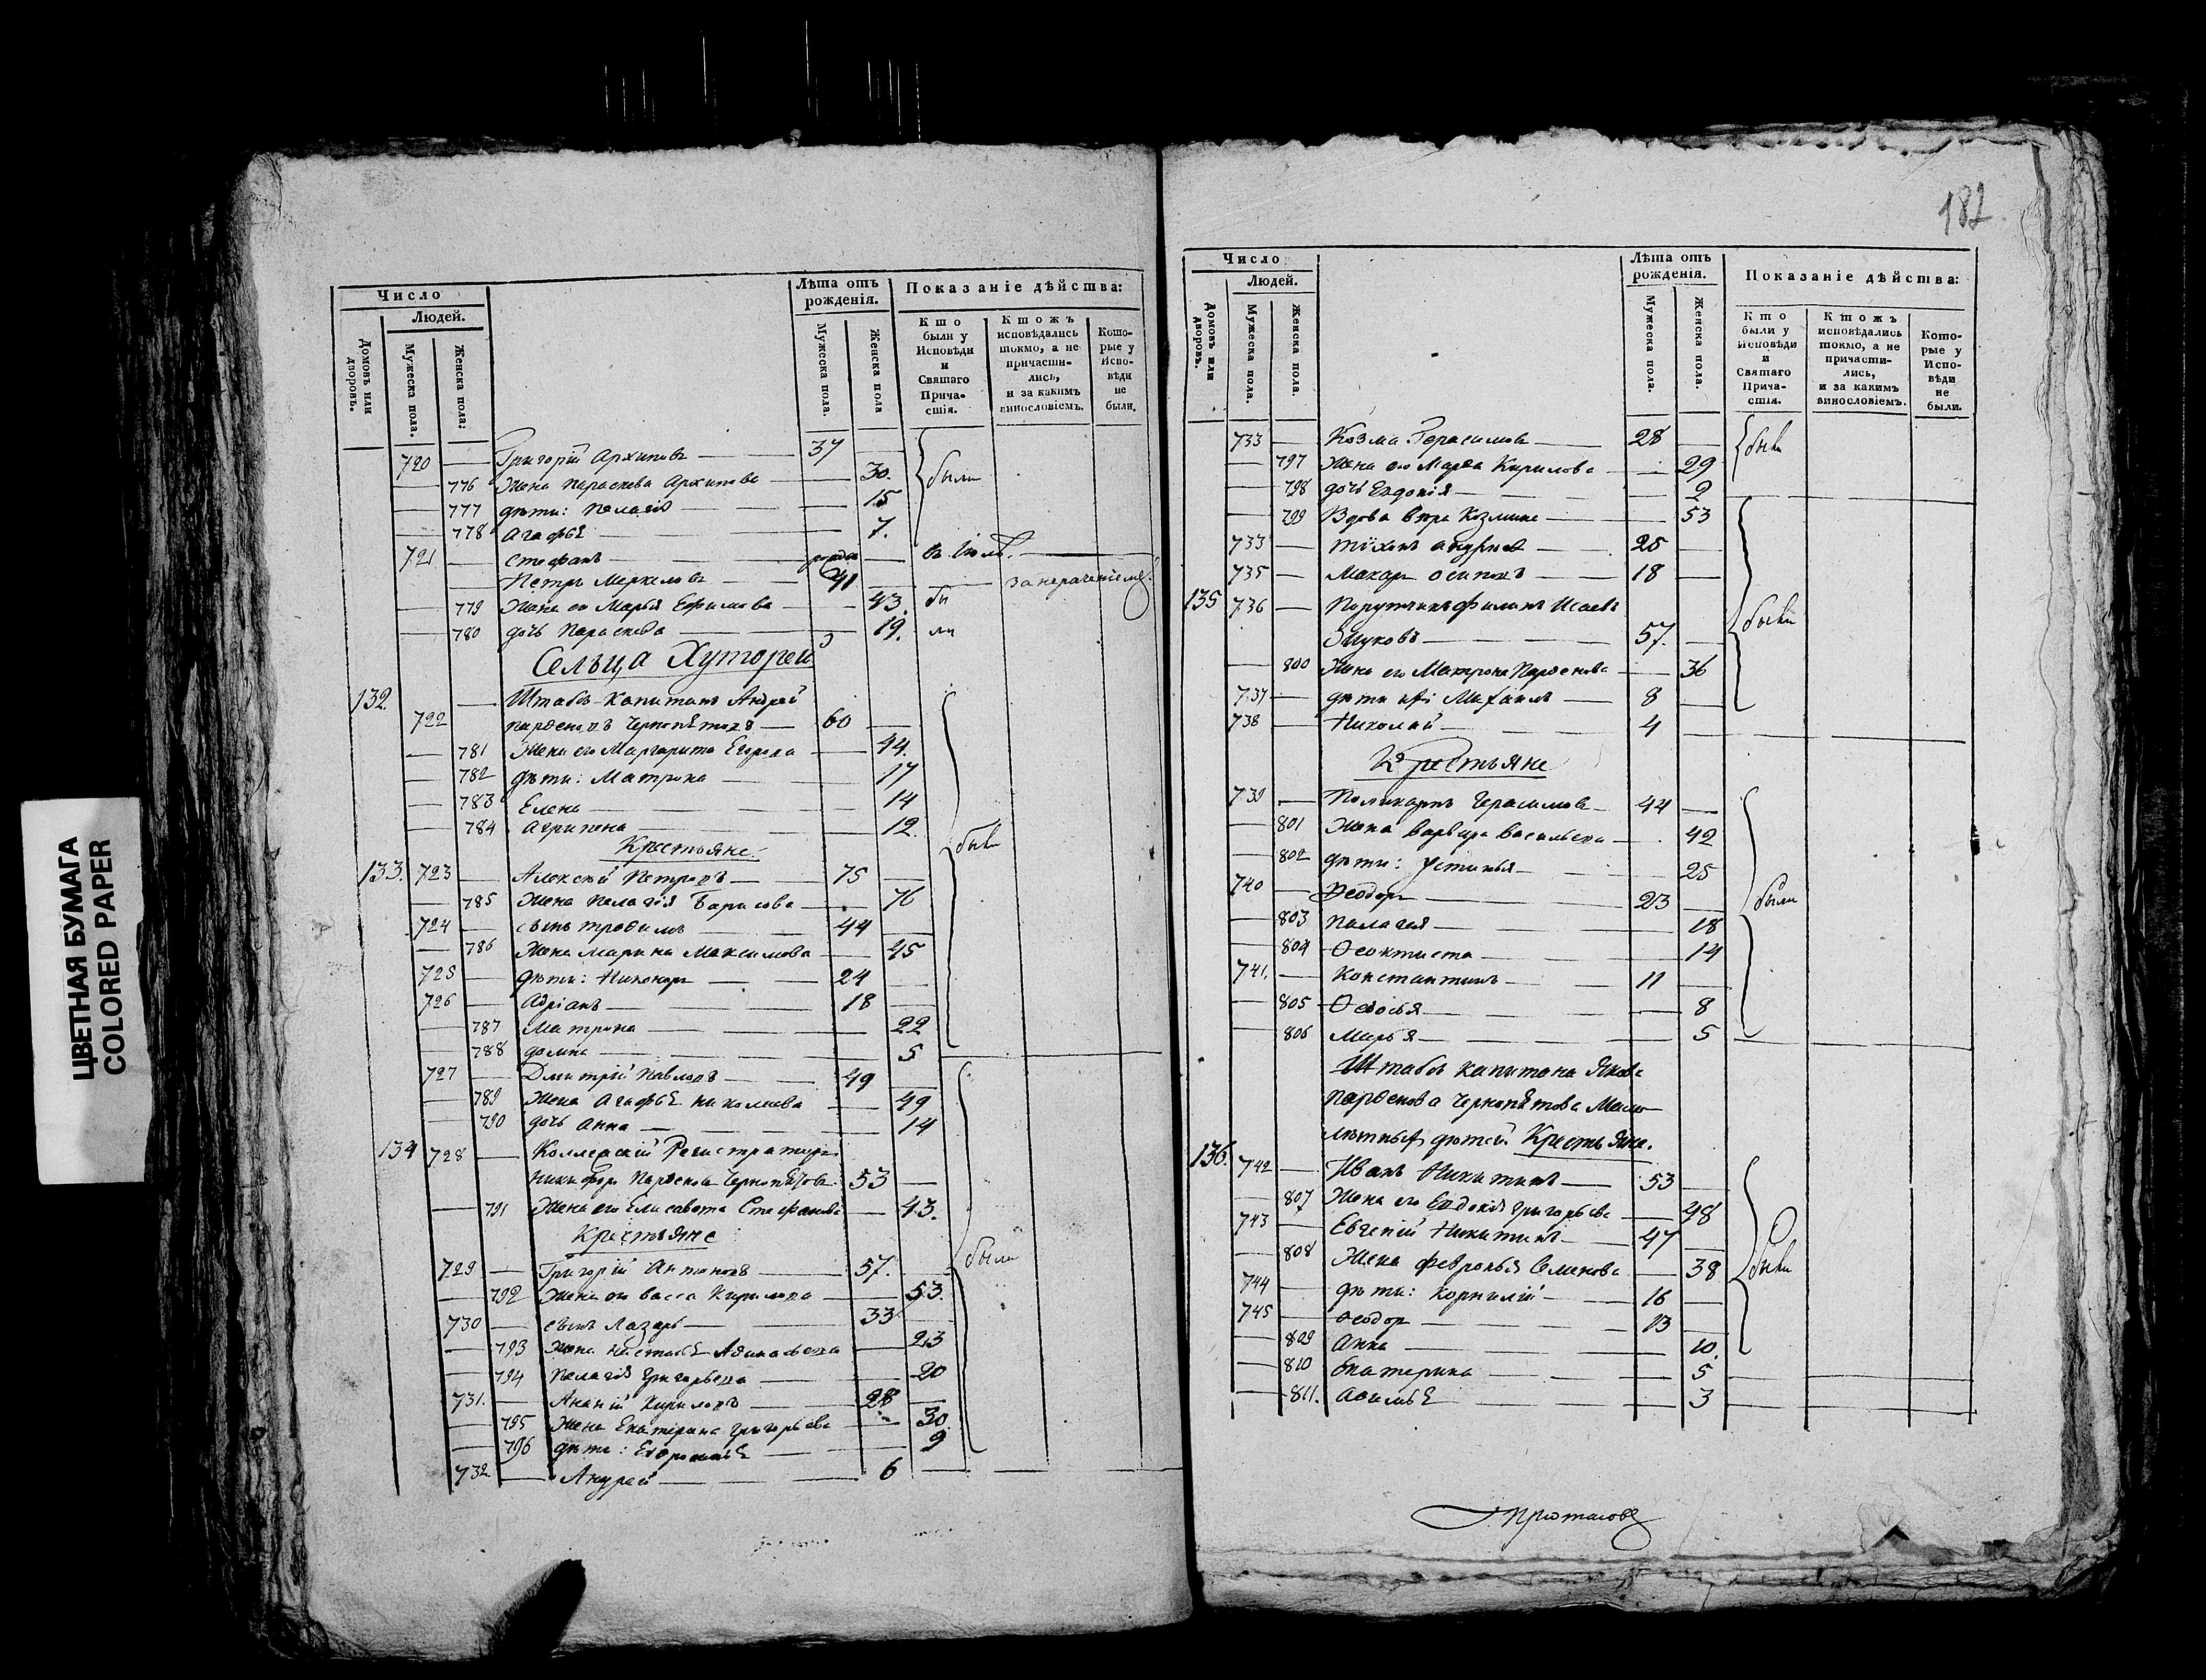 ЦВЕТНАЯ БУМАГА
COLORED PAPER
Число
Людей.
Домовъ или дворовъ.
Мужеска пола.
Женска пола:
Лѣта отъ рожденія.
Мужеска пола.
Женска пола
Показаніе дѣйства:
Кто были у Исповѣди и Святаго Прича-стія.
Ктожъ исповѣдались токмо, а не причасти-лись, и за какимъ винословіемъ.
Кото-рые у Испо-вѣди не были.
720 — Григорій Архиповъ — 37 —
— 776 Жена Параскева Архипова — 30. были
— 777 дѣти: Пелагія — 15
— 778 Агафья — 7.
721 — Стефанъ —
Петръ Меркиловъ — 41 — за нераченіемъ
— 779 Жена его Марья Ефимова — 43. бы
— 780 дочь Параскева — 19. ли
Сельца Хуторей
132. — Штабъ-Капитанъ Андрей
722 Парѳеновъ Чернопятовъ — 60 —
— 781 Жена его Маргарита Егорова — 44.
— 782 дѣти: Матрона — 17
— 783 Елена — 14
— 784 Агрипена — 12.
Крестьяне. были
133. 723 — Алексѣй Петровъ — 75 —
— 785 Жена Пелагія Барисова — 76
724 — сынъ Трофимъ — 44 —
— 786 Жена Марина Максимова — 45
725 — дѣти: Никоноръ — 24 —
726 — Адріанъ — 18 —
— 787 Матрона — 22
— 788 Домна — 5
727 — Дмитрій Павловъ — 49 —
— 789 Жена Агафья Николаева — 49
— 790 дочь Анна — 14
134 728 — Коллежскій Регистраторъ
Никифоръ Парѳеновъ Чернопятовъ 53 —
— 791 Жена его Елисавета Стефанова — 43.
Крестьяне
729 — Григорій Антоновъ — 57. — были
— 792 Жена его Васса Кирилова — 53.
730 — сынъ Лазарь — 33
— 793 Жена Настасья — 23
— 794 Пелагія Григорьева — 20
731. — Ананій Кириловъ — 28 —
— 795 Жена Екатерина Григорьева — 30.
— 796 дѣти: Евфросинья — 9
732. — Андрей — 6 —
182
Число
Людей.
Домовъ или дворовъ.
Мужеска пола.
Женска пола.
Лѣта отъ рожденія.
Мужеска пола.
Женска пола.
Показаніе дѣйства:
Кто были у Исповѣди и Святаго Прича-стія.
Ктожъ исповѣдались токмо, а не причасти-лись, и за какимъ винословіемъ.
Кото-рые у Испо-вѣди не были.
733 — Козма Герасимовъ — 28 — были
— 797 Жена его Марѳа Кирилова — 29
— 798 дочь Евдокія — 2
— 799 Вдова Вѣра Козмина — 53
733 — Тихонъ Андреевъ — 25 —
735 — Макаръ Осиповъ — 18 —
135 736 — Порутчикъ Филипъ Исаевъ были
Жуковъ — 57. —
— 800 Жена его Матрона Парѳенова — 36
737 — дѣти ихъ Михаилъ — 8 —
738 — Николай — 4 —
Крестьяне
739 — Поликарпъ Герасимовъ — 44 —
— 801 Жена Варвара Васильева — 42
— 802 дѣти: Устинья — 25
740 — Ѳеодоръ — 23 — были
— 803 Палагея — 18
— 804 Ѳеоктиста — 14
741. — Константинъ — 11 —
— 805 Ѳедосья — 8
— 806 Марья — 5
Штабъ Капитана Якова
Парѳенова Чернопятова Мало
лѣтныхъ дѣтей Крестьяне.
136. 742 — Иванъ Никитинъ — 53 —
— 807 Жена его Евдокія Григорьева — 48
743 — Евгеній Никитинъ — 47 —
— 808 Жена Февронья Семенова — 38 были
744 — дѣти: Корнилій — 16 —
745 — Ѳеодоръ — 13 —
— 809 Анна — 10.
— 810 Екатерина — 5
— 811. Аѳимья — 3
Протасовъ